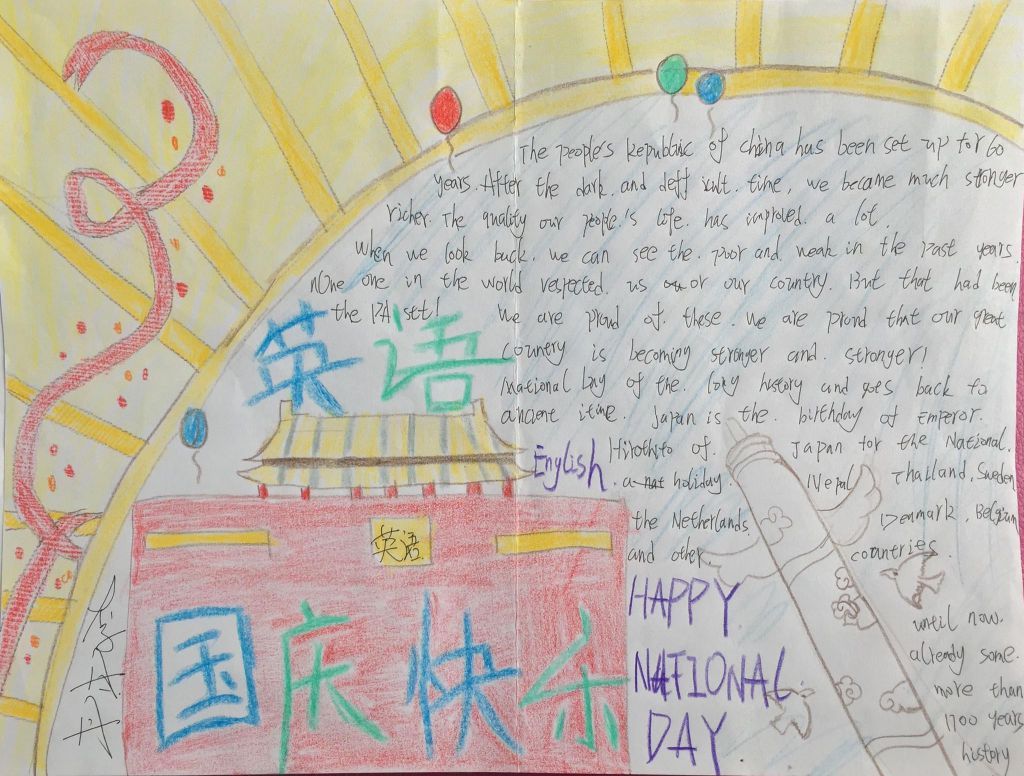 The people's Republic of china has been set up for 60
years. After the dark and deff icult. time, we became much stronger
richer. The quality our people's life. has improled. a lot.
when we look back. we can see the poor and weak in the past years.
nOne one in the world respected. us or our country. But that had been
the PA st!
We are proud of. these. we are proud that our great
country is becoming stronger and. stronger!
National Day of the. long history and goes back to
ancient itime. Japan is the. birthday of emperor.
Hirothito of. Japan for the National.
a nat holiday. Nepal Thailand, Sweden
the Netherlands Denmark, Belgium
and other. countries.
until now.
already some.
more than
1700 years
history
英语
English
英语
国庆快乐
HAPPY
NATIONAL
DAY